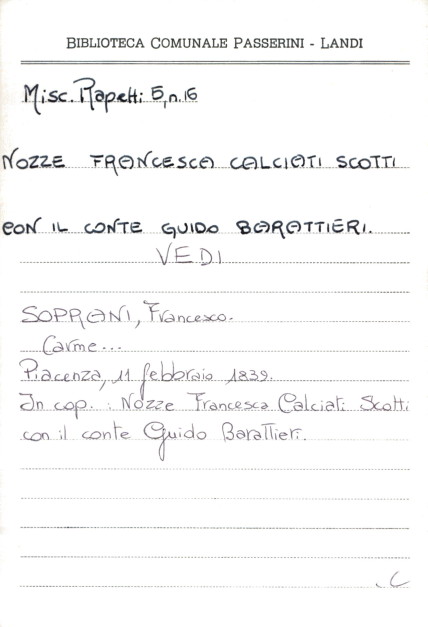 BIBLIOTECA COMUNALE PASSERINI - LANDI
Misc. Rapetti 5, n. 16
NOZZE FRANCESCA CALCIATI SCOTTI
CON IL CONTE GUIDO BARATTIERI.
VEDI
SOPRANI, Francesco.
Carme...
Piacenza, 11 febbraio 1839.
In cop. : Nozze Francesca Calciati Scotti
con il conte Guido Barattieri.